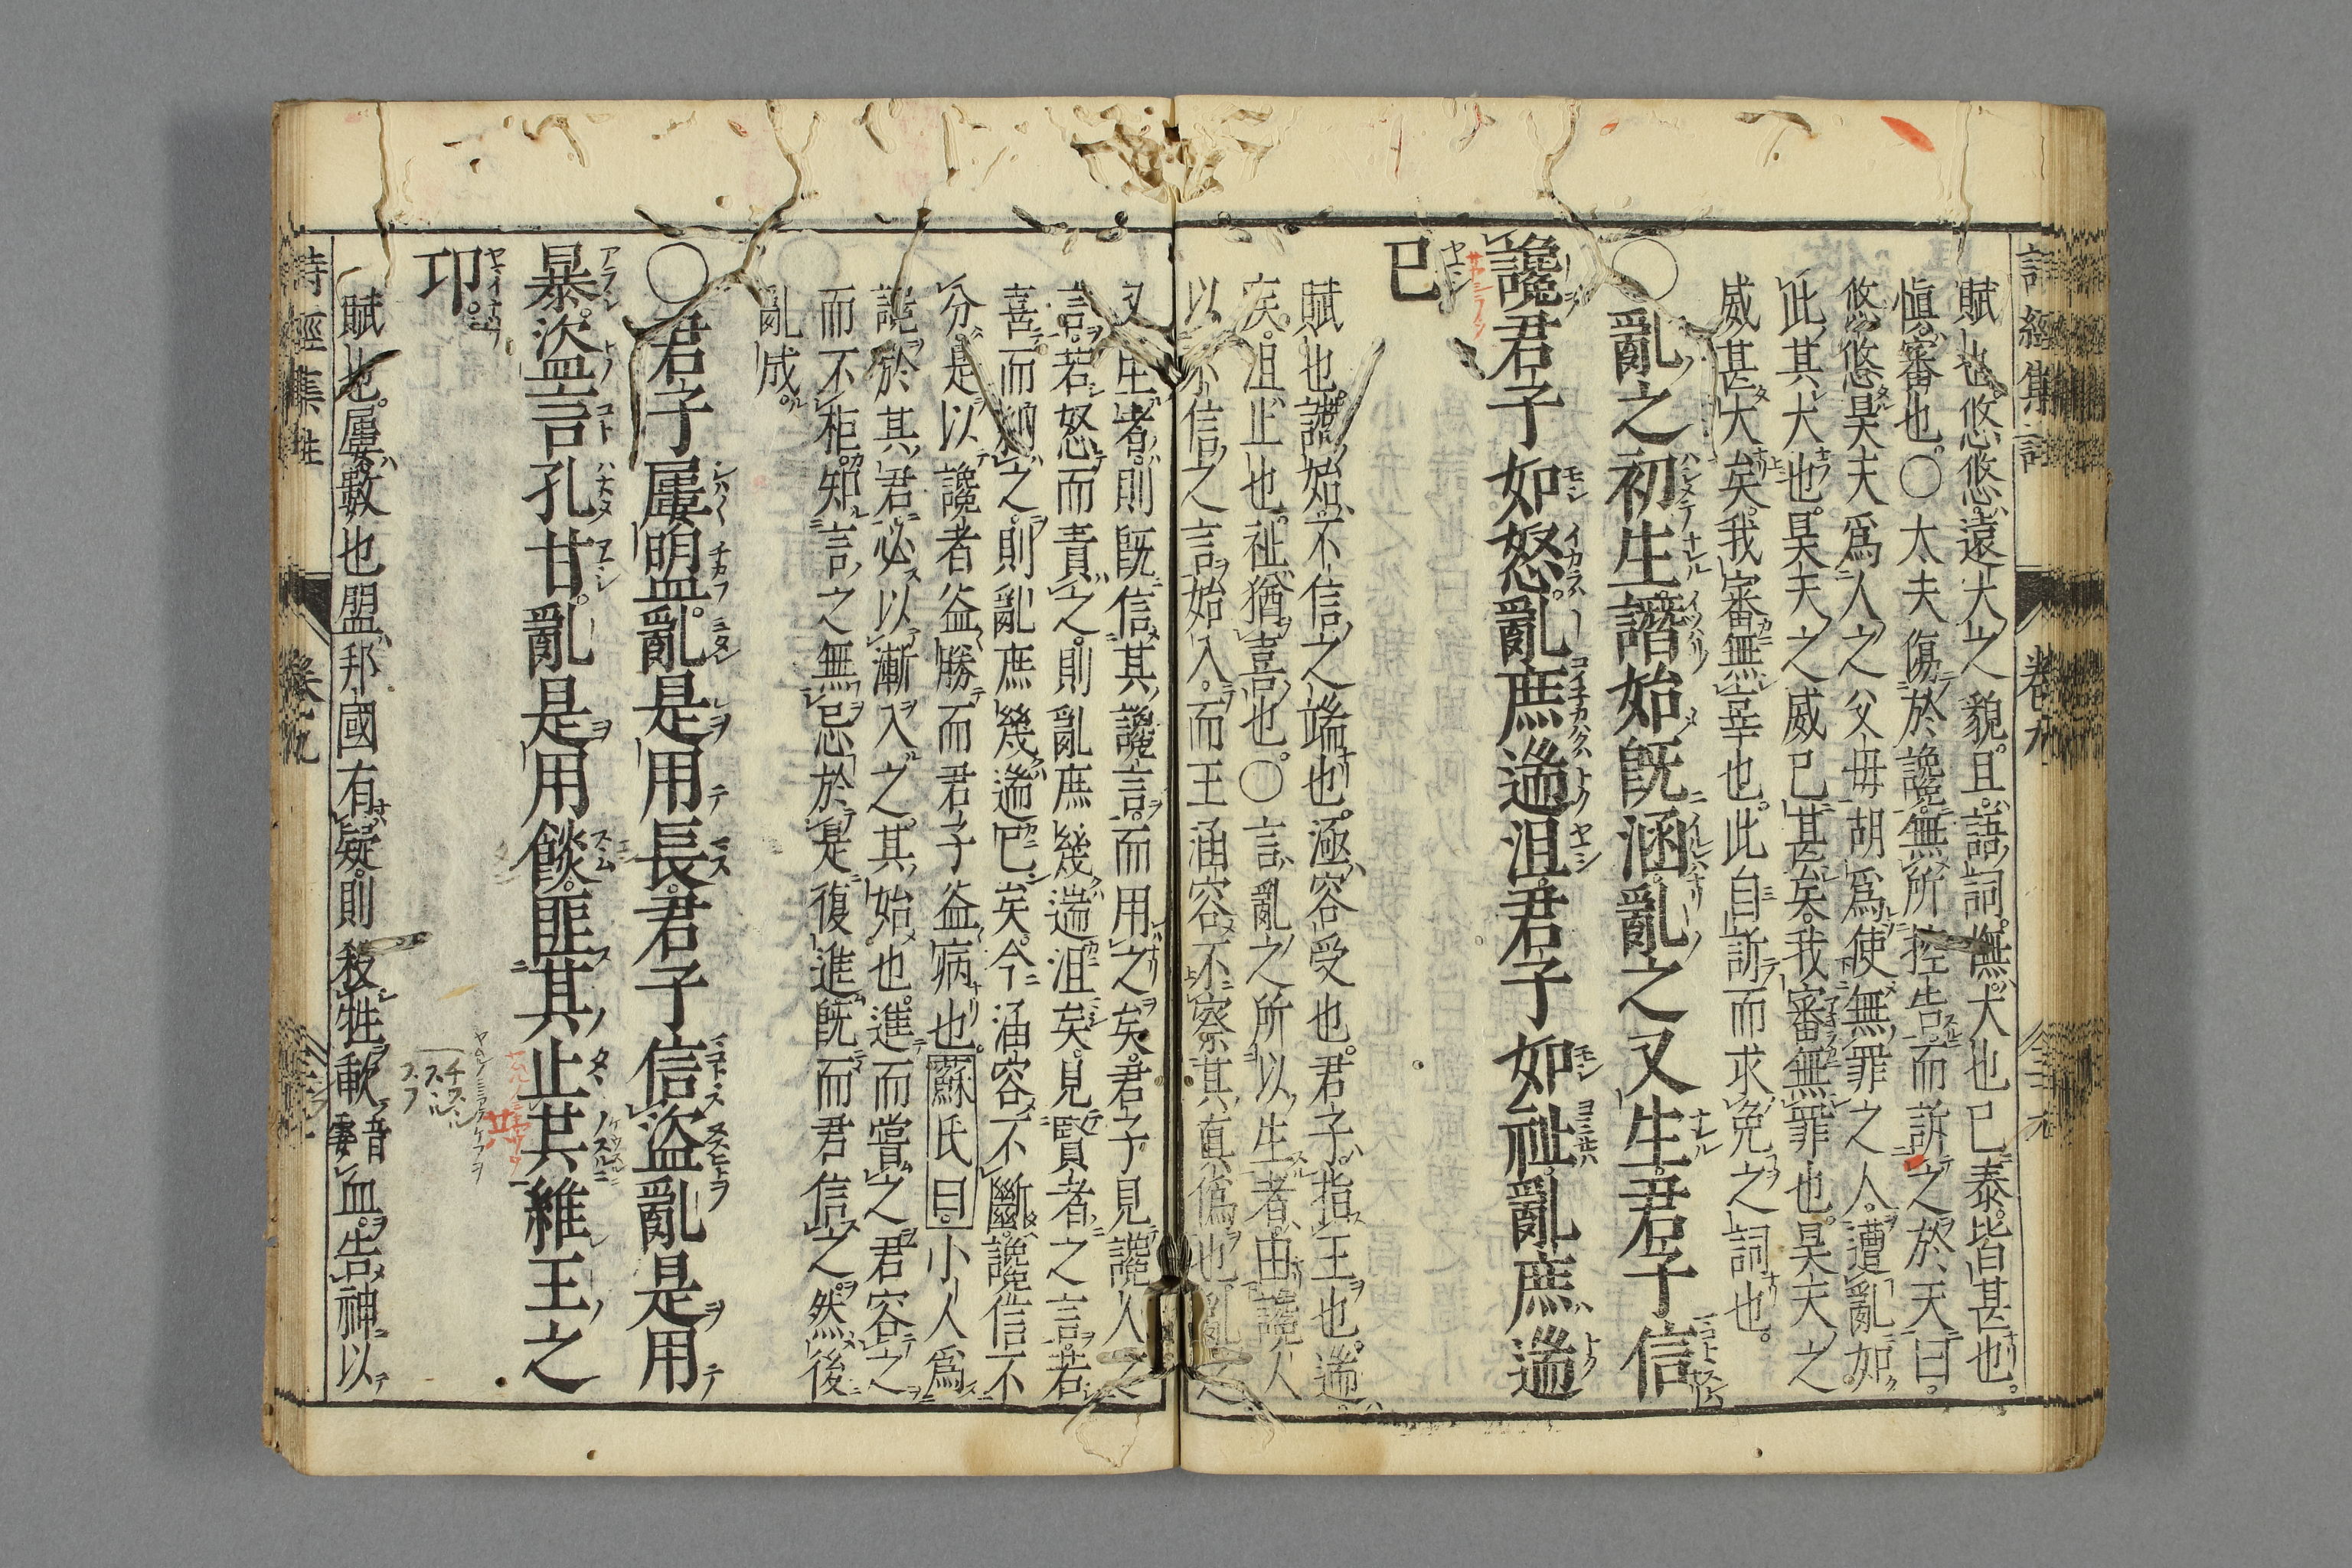 賦也。悠悠、遠大之貌。且、語詞。憮、大也。已・泰、皆甚也。
愼、審也。○大夫傷於讒、無所控告、而訴之於天曰。
悠悠昊天、爲人之父母、胡爲使無罪之人、遭亂如
此其大也。昊天之威已甚矣、我審無罪也。昊天之
威甚大矣、我審無辜也。此自訴而求免之詞也。
○亂之初生。譖始旣涵。亂之又生。君子信
讒。君子如怒。亂庶遄沮。君子如祉。亂庶遄
已
賦也。譖始、不信之端也。涵、容受也。君子、指王也。遄、
疾。沮、止也。祉、猶喜也。○言亂之所以生者、由讒人
以不信之言始入、而王涵容不察其眞僞也。亂之
又生者、則旣信其讒言、而用之矣。君子見讒人之
言、若怒而責之、則亂庶幾遄沮矣。見賢者之言、若
喜而納之、則亂庶幾遄已矣。今涵容不斷、讒信不
分、是以讒者益勝、而君子益病也。蘇氏曰。小人爲
讒於其君、必以漸入之。其始也、進而嘗之、君容之
而不拒、知言之無忌、於是復進、旣而君信之、然後
亂成。
○君子屢盟。亂是用長。君子信盜。亂是用
暴。盜言孔甘。亂是用餤。匪其止共。維王之
卭。
賦也。屢、數也。盟、邦國有疑、則殺牲歃血、告神以
詩經集註
卷九